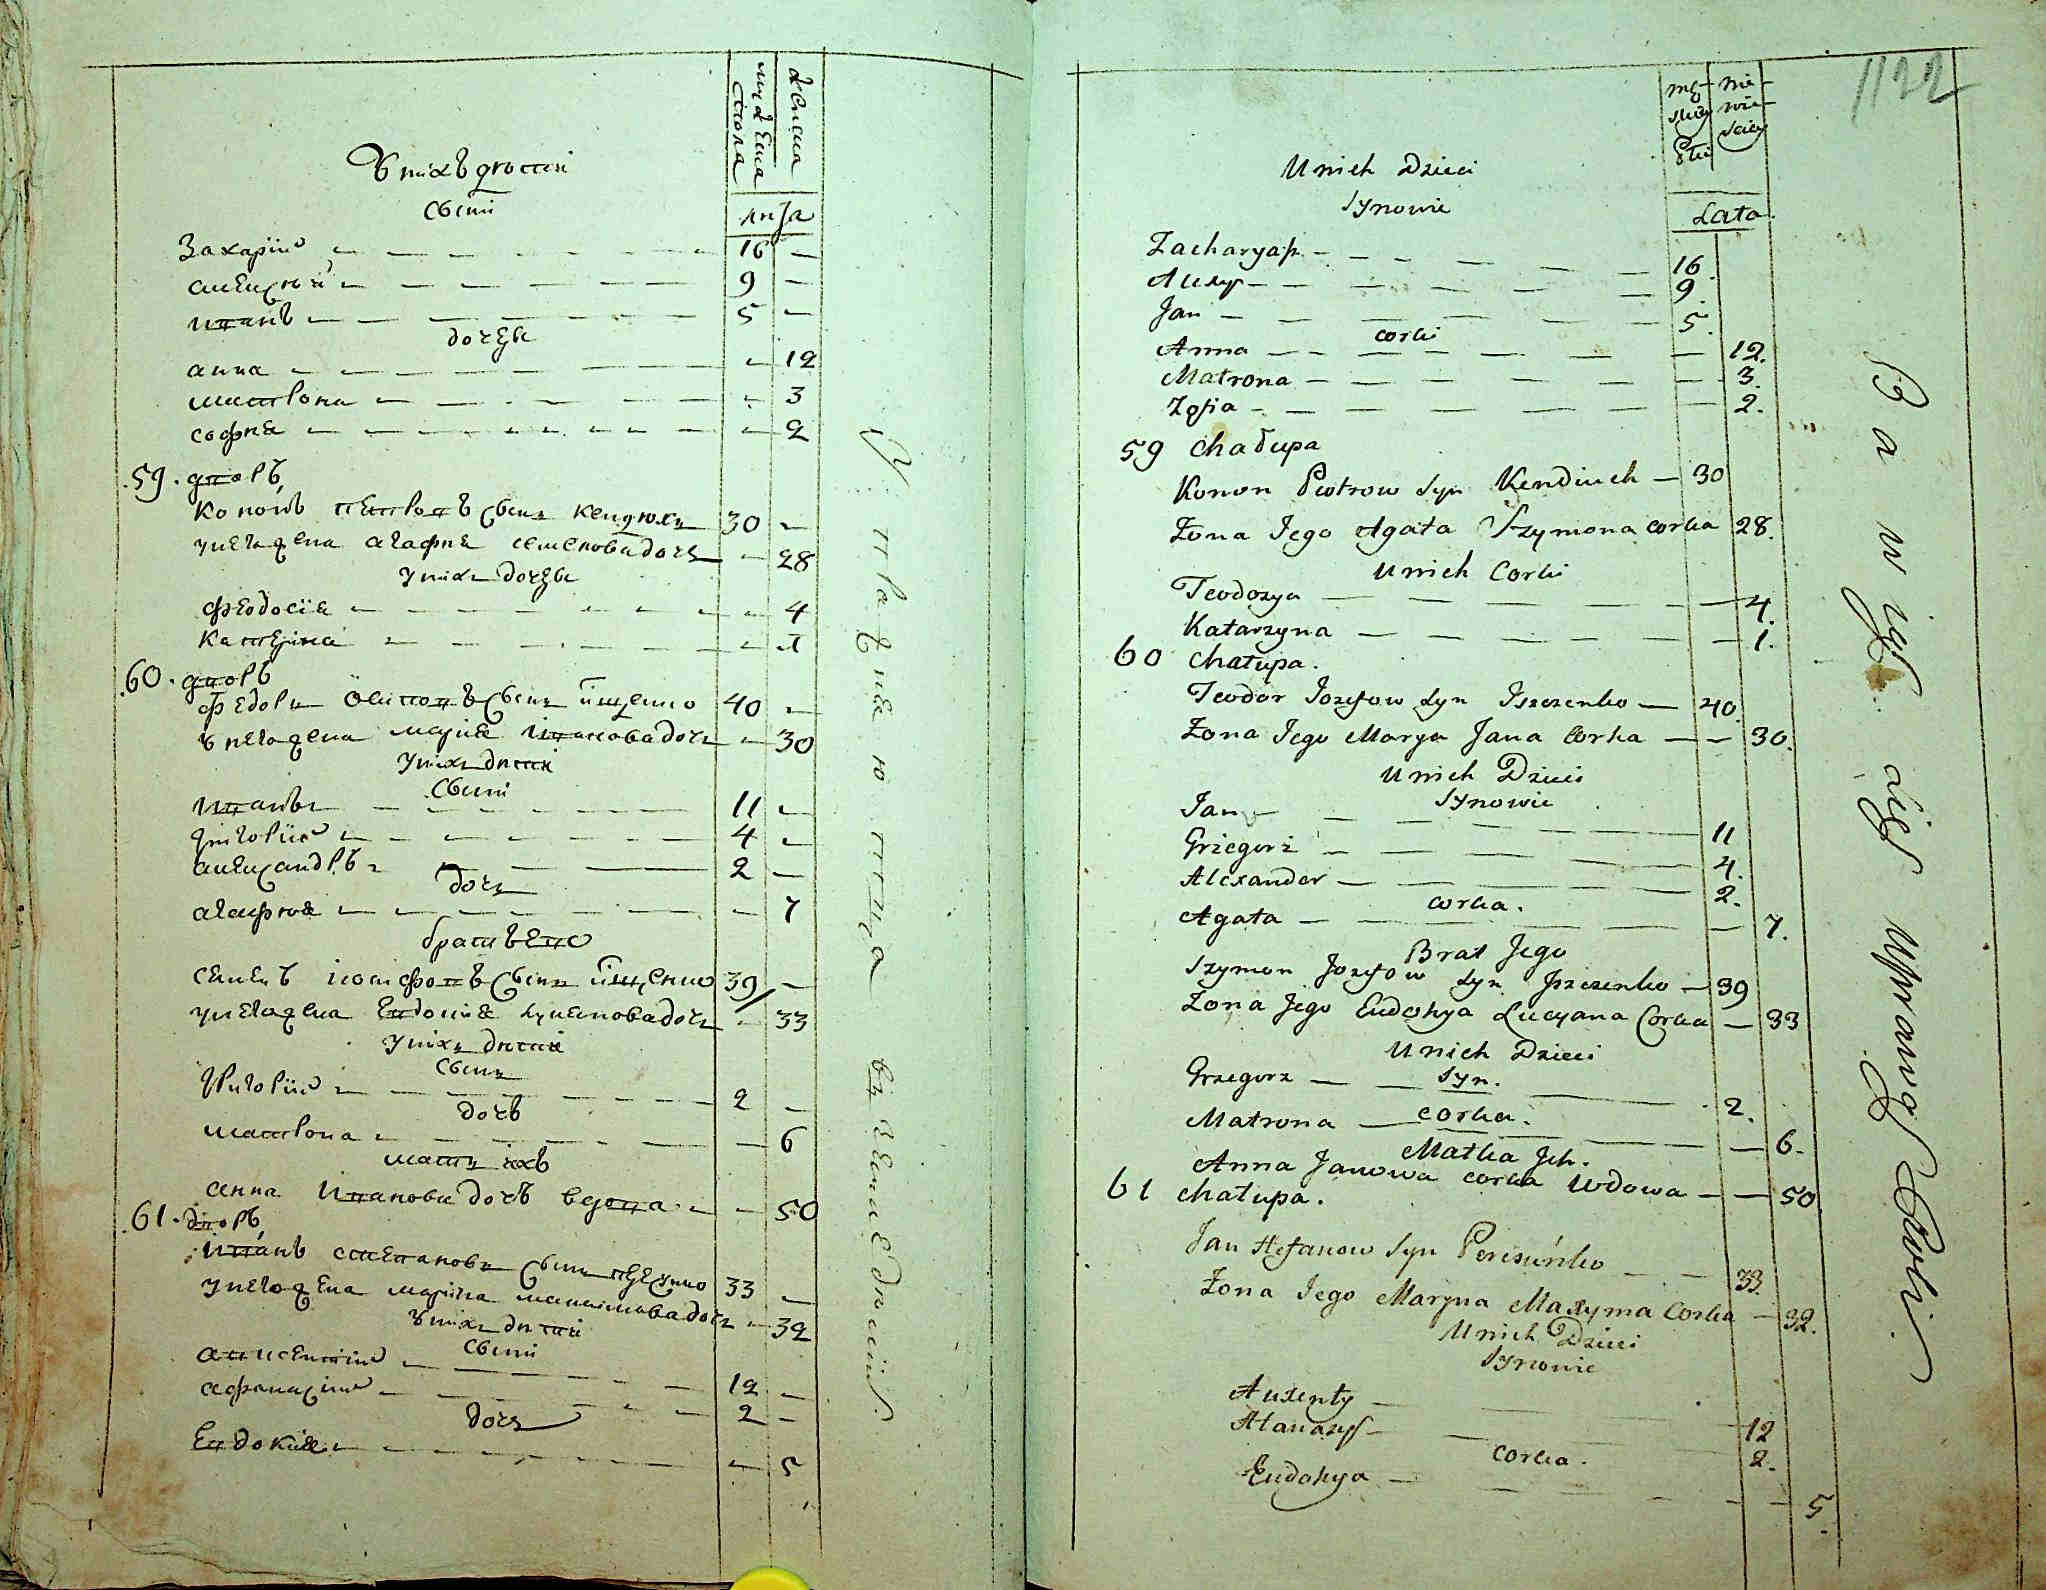 мужеска
пола
женска
У нихъ дѣти
сыни
лѣта
Захарій — 16 —
алексѣй — 9 —
иванъ — 5 —
дочеры
анна — — 12
матрона — — 3
софия — — 2
59. дворъ
Кононъ петровъ сынъ кендюхъ 30 —
у него жена агафия семенова дочь — 28
у нихъ дочеры
феодосія — — 4
Катерина — — 1
60. дворъ
Федоръ Осиповъ сынъ ищенко 40 —
у него жена марія иванова дочь — 30
у нихъ дѣти
Сыни
иванъ — 11 —
григорій — 4 —
александръ — 2 —
дочь
агафия — — 7
братъ его
семенъ иосифовъ сынъ ищенко 39 —
у него жена Евдокия лукянова дочь — 33
у нихъ дѣти
сынъ
григорій — 2 —
дочь
матрона — — 6
мать ихъ
анна иванова дочь вдова — — 50
61. дворъ
иванъ степановъ сынъ 33 —
у него жена марина максимова дочь — 32
у нихъ дѣти
сыни
авксентій — 12 —
афанасій — 2 —
дочь
Евдокия — — 5
1122
mę-
skiey
Płci
Nie-
wie-
sciey
U nich Dzieci
Synowie
Lata
Zacharyasz — 16
Alexy — 9
Jan — 5.
corki
Anna — 12.
Matrona — 3.
Zofia — 2.
59 Chałupa
Konon Piotrow Syn Kendiuch — 30
Zona Jego Agata Szymona corka 28.
U nich Corki
Teodozya — 4.
Katarzyna — 1.
60 Chałupa.
Teodor Jozefow Syn Iszczenko — 40.
Zona Jego Marya Jana Corka — 30.
U nich Dzieci
Synowie
Jan — 11
Grzegorz — 4.
Alexander — 2.
Corka.
Agata — 7.
Brat Jego
Szymon Jozefow Syn Iszczenko — 39
Zona Jego Eudokya Lucyana Corka — 33
U nich Dzieci
Syn.
Grzegorz — 2.
Corka.
Matrona — 6.
Matka Ich.
Anna Janowa corka Wdowa — 50
61 Chałupa.
Jan Stefanow Syn — 33.
Zona Jego Maryna Maxyma Corka — 32.
U nich Dzieci
Synowie
Auxenty — 12
Atanazy — 2.
Corka.
Eudokya — 5.